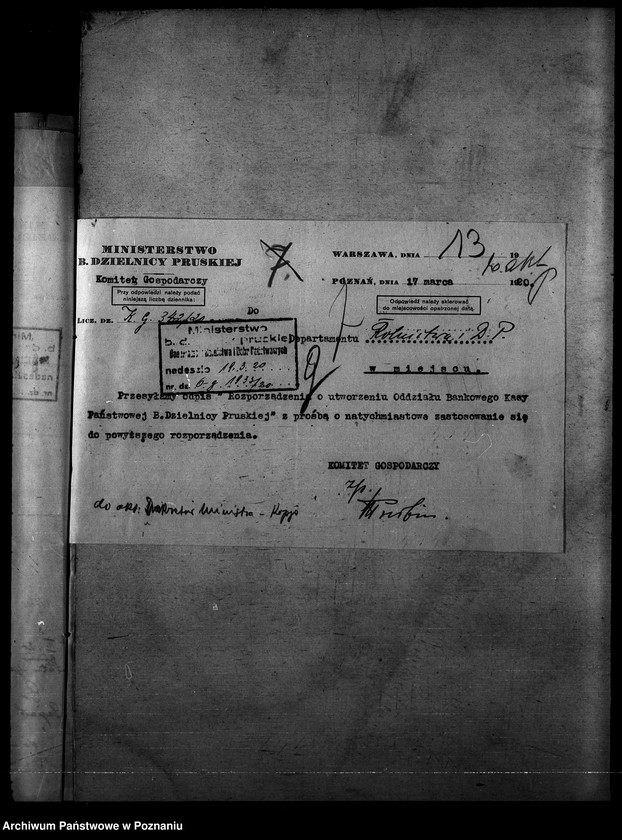 MINISTERSTWO
B. DZIELNICY PRUSKIEJ
Komitet Gospodarczy
Przy odpowiedzi należy podać
niniejszą liczbę dziennika:
LICZ. DZ. K. G.
7.
WARSZAWA, DNIA 13 19
to akt
POZNAŃ, DNIA 17 marca 1920.
Odpowiedź należy skierować
do miejscowości opatrzonej datą.
Do
Departamentu Rolnictwa i D. P.
w miejscu.
Ministerstwo
b. d. pruskiej
nadeszło 19.3.20
nr. dz.
Przesyłamy odpis " Rozporządzenia o utworzeniu Oddziału Bankowego Kasy
Państwowej B.Dzielnicy Pruskiej" z prośbą o natychmiastowe zastosowanie się
do powyższego rozporządzenia.
KOMITET GOSPODARCZY
do akt:
Archiwum Państwowe w Poznaniu